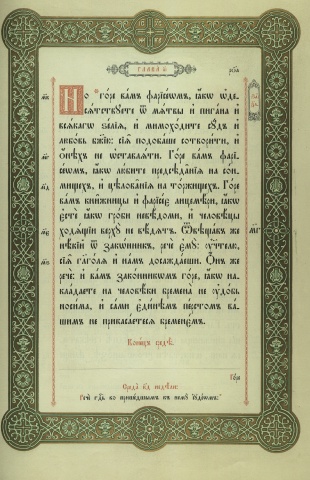 ГЛАВА
Но̀ го́ре ва́мъ фарїсе́ѡмъ, ꙗ҆́кѡ ѡ҆де-
сѧ́тствꙋете ѿ мѧ́твы и҆ пи́гана и҆
всѧ́кагѡ ѕе́лїѧ, и҆ мимохо́дите сꙋ́дъ и҆
любо́вь бж҃їю: сїѧ̑ подоба́ше сотвори́ти, и҆
ѻ҆́нѣхъ не ѡ҆ставлѧ́ти. Го́ре ва́мъ фарїсе́-
ѡмъ, ꙗ҆́кѡ лю́бите предсѣда̑нїѧ на со́н-
мищехъ, и҆ цѣлова̑нїѧ на то́ржищехъ. Го́ре
ва́мъ кни́жницы и҆ фарїсе́є лицемѣ́ри, ꙗ҆́кѡ
є҆стѐ ꙗ҆́кѡ гро́би невѣ́доми, и҆ человѣ́цы
ходѧ́щїи верхꙋ̀ не вѣ́дѧтъ. Ѿвѣща́въ же
нѣ́кїй ѿ зако̑нникъ, речѐ є҆мꙋ̀: ᲂу҆чт҃лю,
сїѧ̑ гл҃голѧ и҆ на́мъ досажда́еши. Ѻ҆́нъ же
речѐ: и҆ ва́мъ зако́нникѡмъ го́ре, ꙗ҆́кѡ на-
клада́ете на человѣ́ки бремена̀ не ᲂу҆до́бь
носи̑ма, и҆ са́ми є҆ди́нѣмъ пе́рстомъ ва́-
шимъ не прикаса́етесѧ бременє́мъ.
Коне́цъ средѣ̀.
Го́ре
Среда̀ к҃д недѣ́ли:
Речѐ гдⷭ҇ь ко прише́дшымъ къ немꙋ̀ і҆ꙋде́ѡмъ: